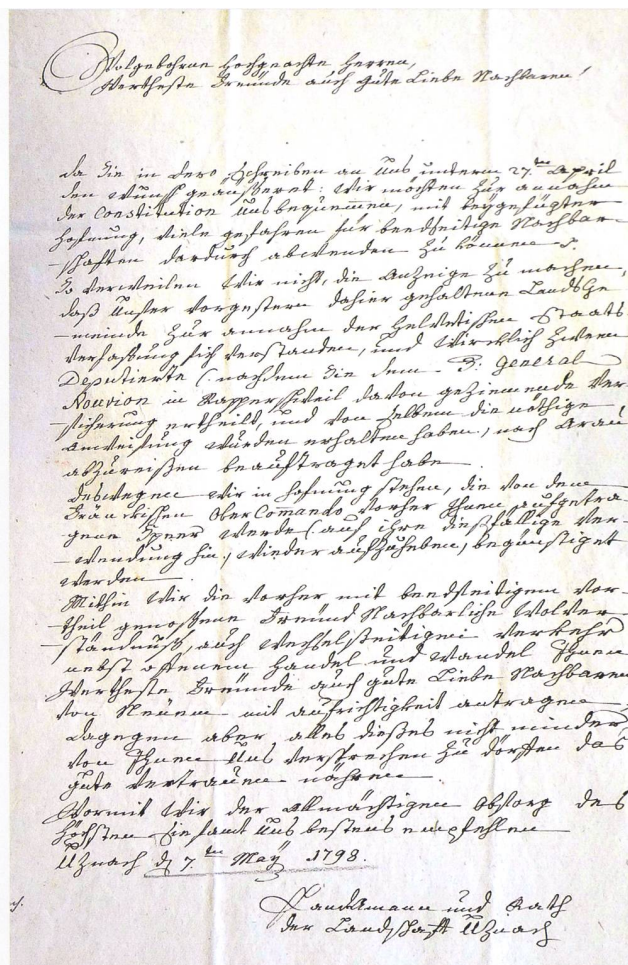 Wolgebohrne Hochgeachte Herren,
Wertheste Freünde auch gute Liebe Nachbaren!
da Sie in dero Schreiben an Uns unterm 27ten April
den Wunsch geäusseret: Wir möchten zur annahm
der Constitution Uns bequemen, mit beygefügter
Hofnung, viele gefahren für beedseitige Nachbar-
-schaften dardurch abwenden zu können
So verweilen Wir nicht, die Anzeige zu machen,
daß Unser vorgestern dahier gehaltene Landsge
-meinde zur annahm der Helvetischen Staats
Verfassung sich verstanden, und Würcklich zween
Deputierte (nachdem Sie dem B: General
Nouvion in Rapperschweil davon geziemende Ver
-sicherung ertheilt, und von selbem die nöthige
Anweisung würden erhalten haben, nach Arau
abzureisen beauftraget habe.
Deswegen Wir in Hofnung stehen, die von dem
Fränckischen Ober Comando vorher Ihnen aufgetra
gene Speer werde (auf ihre diesfällige Ver-
-wendung hin, wieder aufzuheben, begünstiget
werden.
Mithin Wir die vorher mit beedseitigem Vor-
-theil genossene Freünd Nachbarliche Wolver
-ständnuß, auch Wechselseitigen Verkehr
nebst offenem Handel und Wandel Ihnen
Wertheste Freünde auch gute Liebe Nachbaren
von Neüem mit aufrichtigkeit antragen,
dagegen aber alles dieses nicht minder
von Ihnen Uns versprechen zu dörffen das
gute Vertrauen nähren.
Wormit Wir der Allmächtigen Obsorg des
Höchsten Sie samt Uns bestens empfehlen
Uznach d. 7ten May 1798.
Landammann und Rath
der Landschaft Uznach